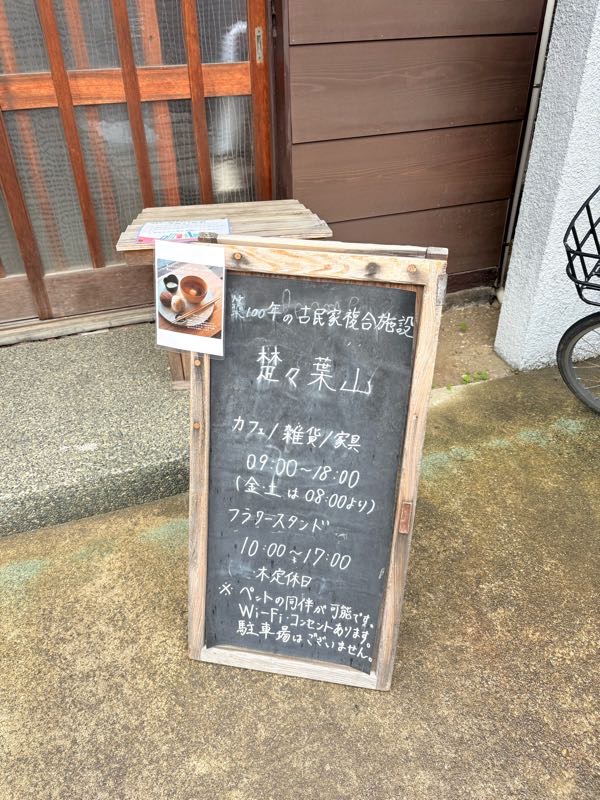 築100年の古民家複合施設
楚々葉山
カフェ/雑貨/家具
09:00〜18:00
(金・土は08:00より)
フラワースタンド
10:00〜17:00
木定休日
※ペットの同伴が可能です。
Wi-Fi・コンセントあります。
駐車場はございません。